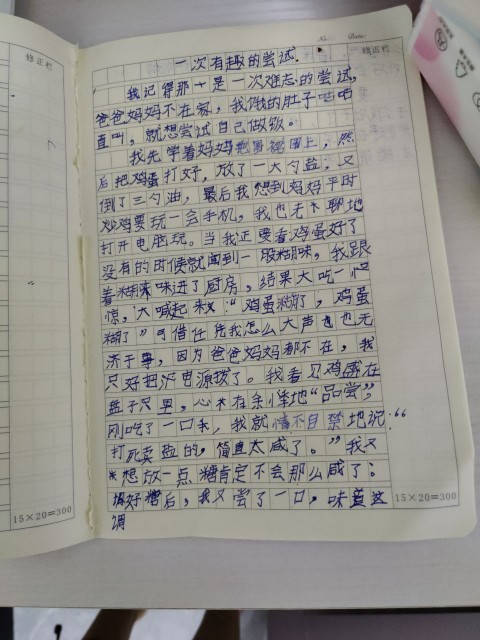 No: Date:
修正栏
修正栏
一次有趣的尝试.
我记得那十是一次难忘的尝试,
爸爸妈妈不在家,我饿的肚子咕咕
直叫,就想尝试自己做饭。
我先学着妈妈把围裙围上,然
后把鸡蛋打好,放了一大勺盐,又
倒了三勺油,最后我想到妈妈平时
炒鸡要玩一会手机,我也无聊地
打开电脑玩。当我正要看鸡蛋好了
没有的时候就闻到一股糊味,我跟
着糊味进了厨房,结果大吃一
惊,大喊起来:“鸡蛋糊了,鸡蛋
糊了”可惜任凭我怎么大声也也无
济于事,因为爸爸妈妈都不在,我
只好把电源拔了。我看见鸡蛋在
盘子里,心地“品尝”,
刚吃了一口我,我就情不自禁地说:“
打死卖盐的,简直太咸了。”我又
想放一点糖肯定不会那么咸了;
好糖后,我又尝了一口,味这
调
15×20=300
15×20=300